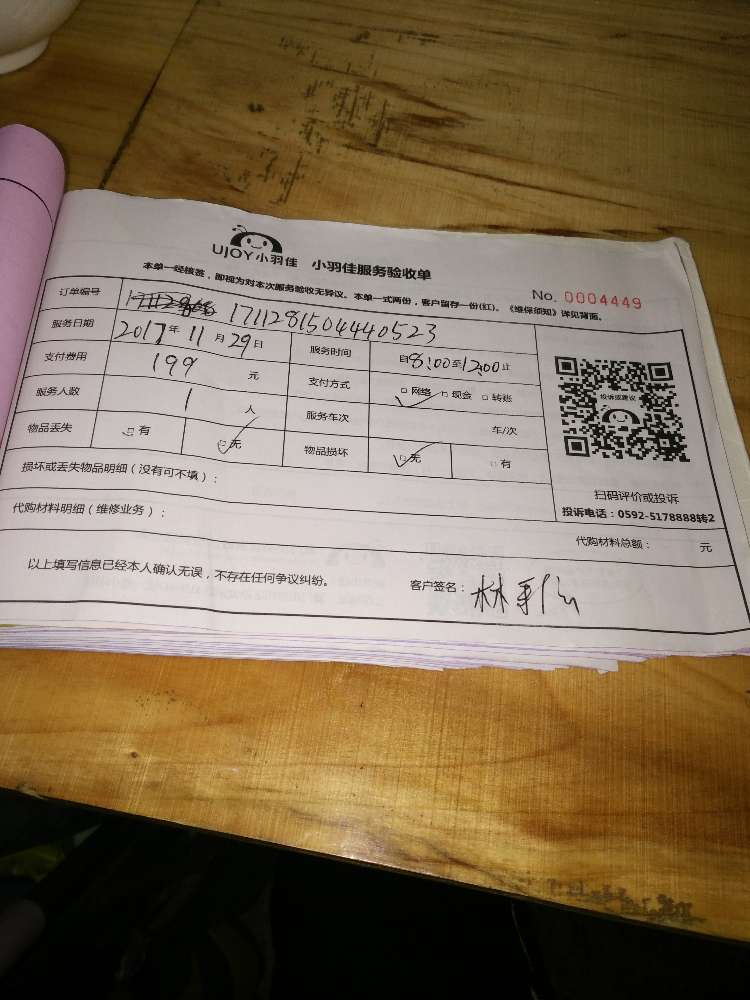 UJOY小羽佳 小羽佳服务验收单
本单一经核签，即视为对本次服务验收无异议。本单一式两份，客户留存一份(红)。《维保须知》详见背面。
No. 0004449
订单编号 1711281504440523
服务日期 2017年 11月 29日 服务时间 自8:00至12:00止
支付费用 199 元 支付方式 网络 现金 转账
服务人数 1 人 服务车次 车/次
物品丢失 有 无 物品损坏 无 有
投诉或建议
扫码评价或投诉
投诉电话：0592-5178888转2
损坏或丢失物品明细（没有可不填）：
代购材料明细（维修业务）：
代购材料总额： 元
以上填写信息已经本人确认无误，不存在任何争议纠纷。 客户签名： 林